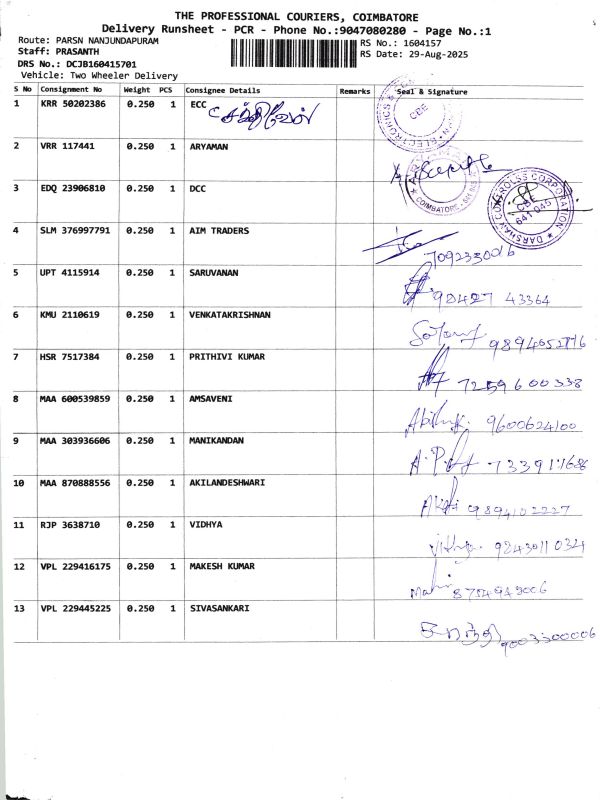 THE PROFESSIONAL COURIERS, COIMBATORE
Delivery Runsheet - PCR - Phone No.:9047080280 - Page No.:1
Route: PARSN NANJUNDAPURAM
Staff: PRASANTH
DRS No.: DCJB160415701
Vehicle: Two Wheeler Delivery
RS No.: 1604157
RS Date: 29-Aug-2025
S No Consignment No Weight PCS Consignee Details Remarks Seal & Signature
1 KRR 50202386 0.250 1 ECC
CBE
2 VRR 117441 0.250 1 ARYAMAN
COIMBATORE
3 EDQ 23906810 0.250 1 DCC
DARSHAN CONGROLSS CORPORATION
CBE
641 045
4 SLM 376997791 0.250 1 AIM TRADERS
7092330016
5 UPT 4115914 0.250 1 SARUVANAN
90427 43364
6 KMU 2110619 0.250 1 VENKATAKRISHNAN
7 HSR 7517384 0.250 1 PRITHIVI KUMAR
7259600338
8 MAA 600539859 0.250 1 AMSAVENI
9600624100
9 MAA 303936606 0.250 1 MANIKANDAN
10 MAA 870888556 0.250 1 AKILANDESHWARI
9894102227
11 RJP 3638710 0.250 1 VIDHYA
9843011034
12 VPL 229416175 0.250 1 MAKESH KUMAR
13 VPL 229445225 0.250 1 SIVASANKARI
9003300006